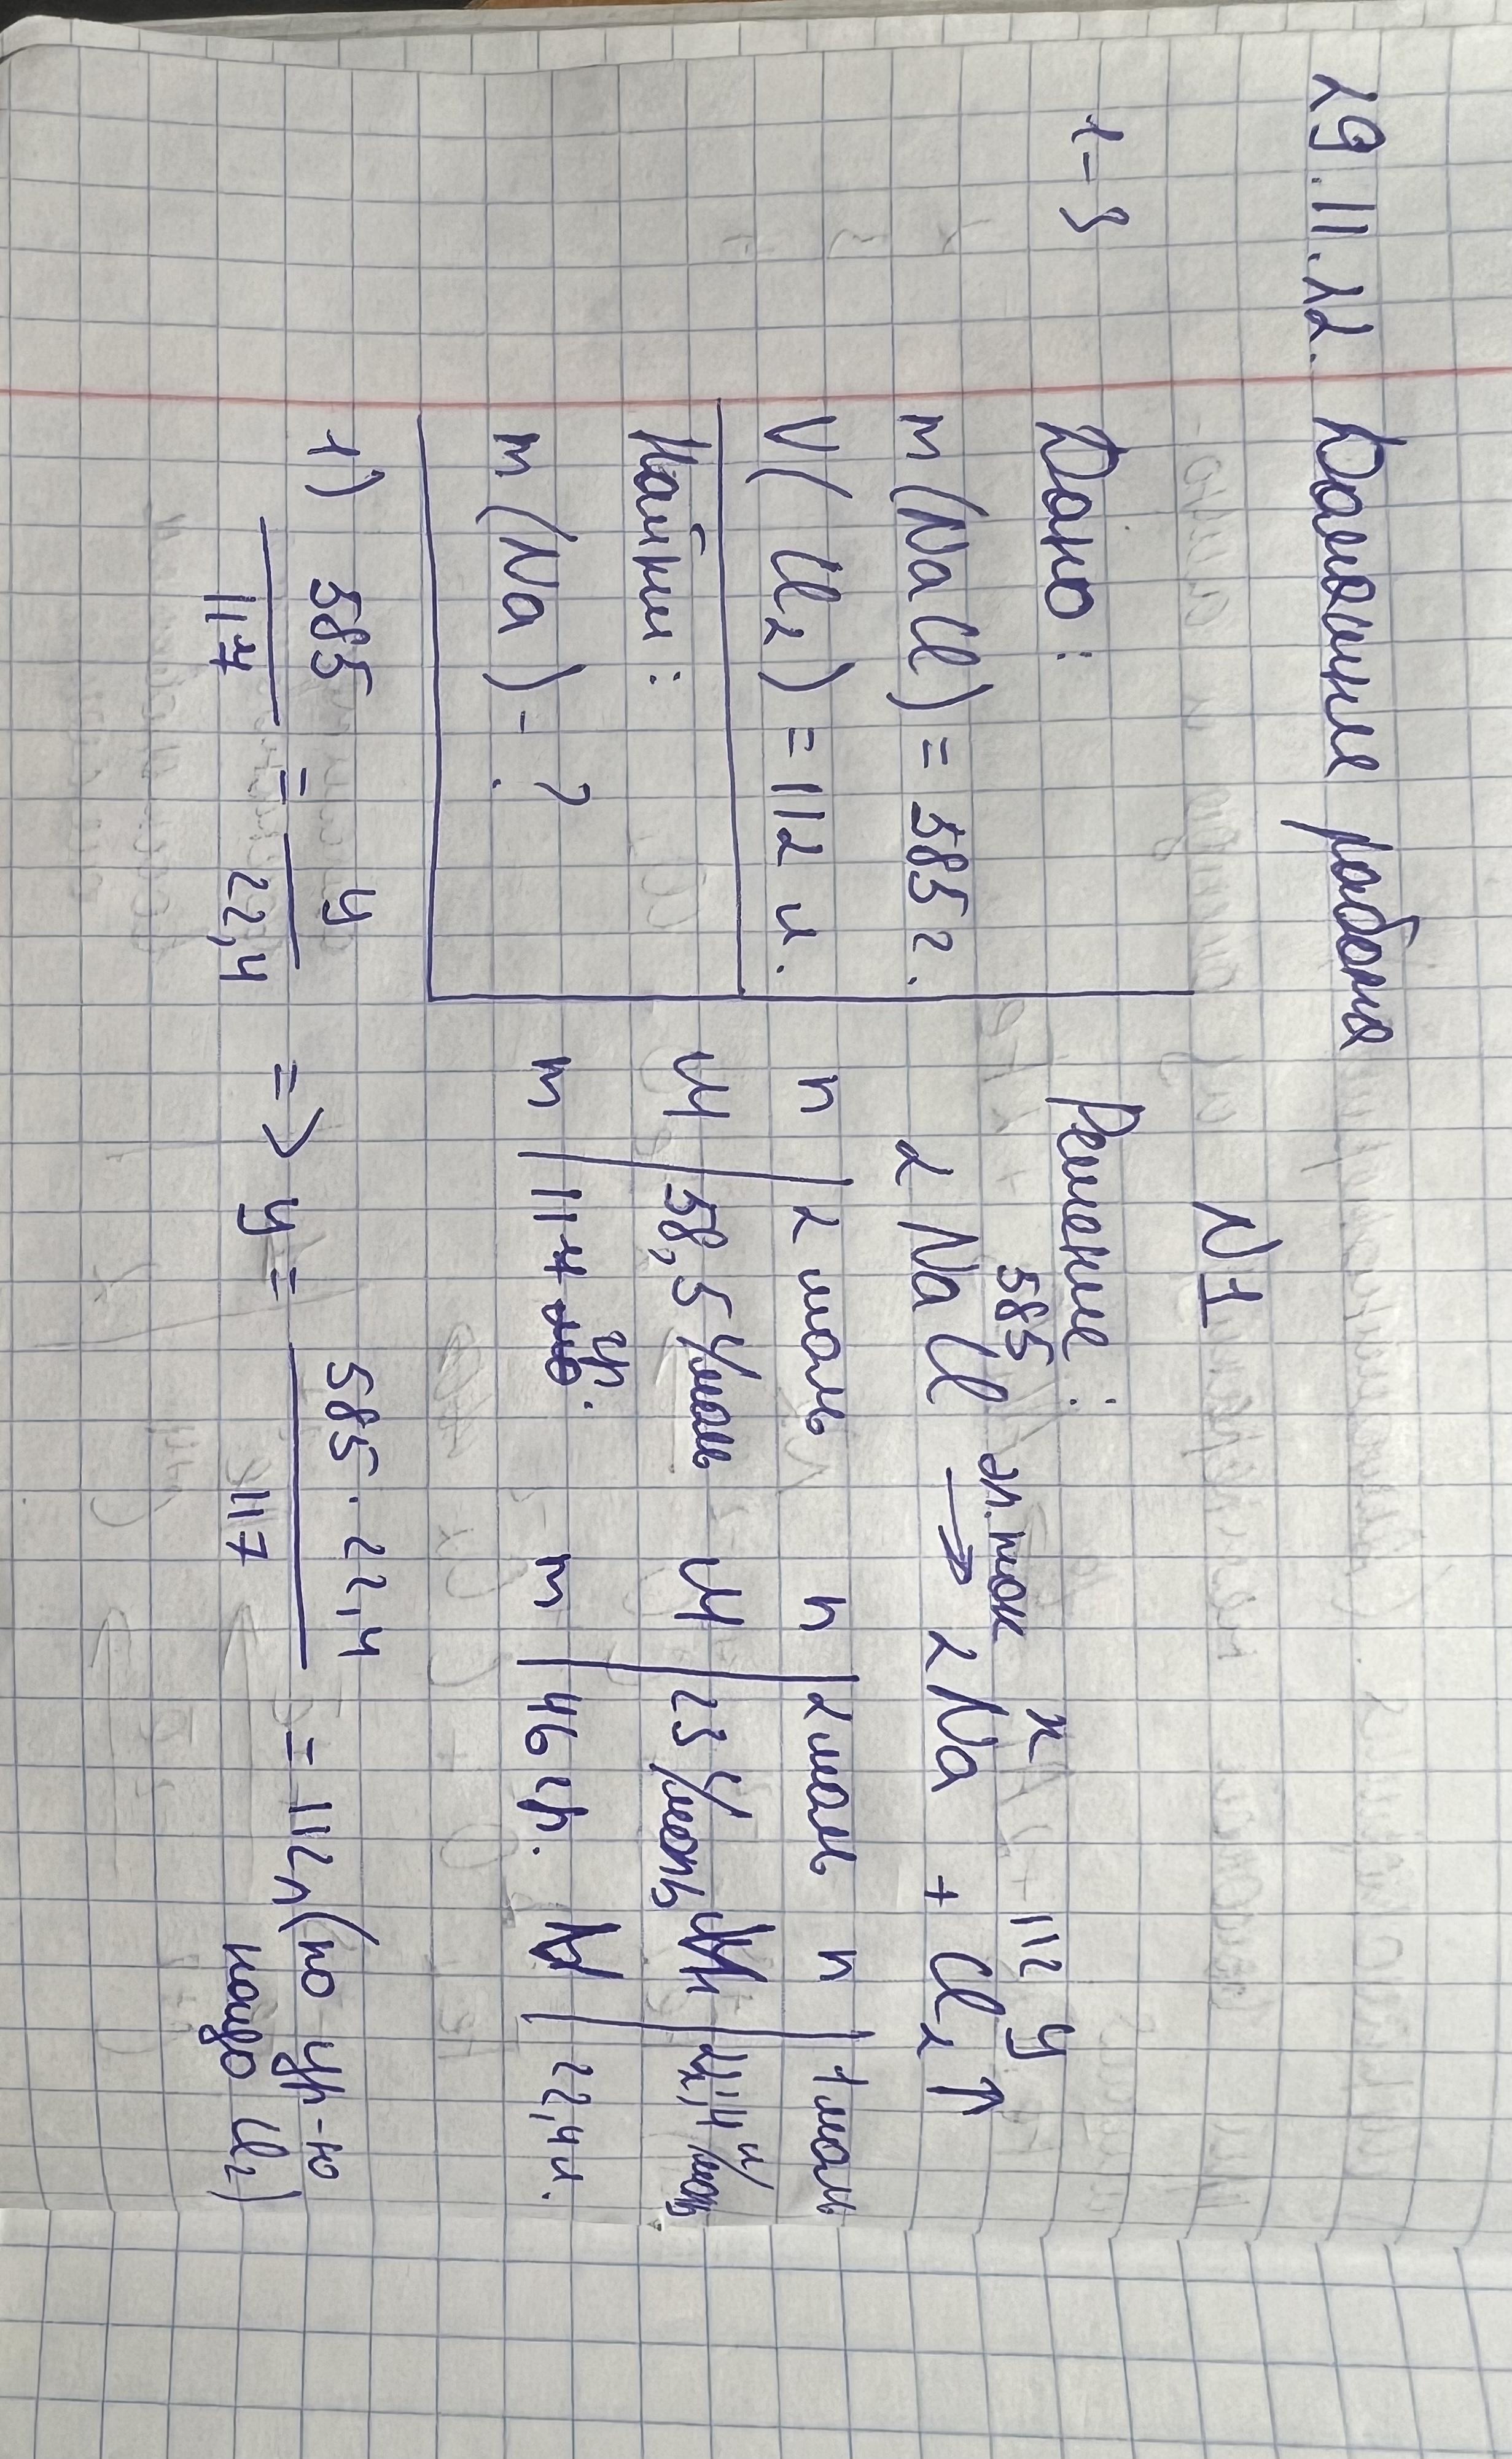 29.11.22. Домашняя работа
N1
1-3
Дано:
m(NaCl) = 585 г.
V(Cl2) = 112 л.
Найти:
m(Na) - ?
Решение:
585 x 112 y
2NaCl эл.ток → 2Na + Cl2↑
n | 2 моль n | 2 моль n | 1 моль
M | 58,5 г/моль M | 23 г/моль 22,4 л/моль
m | 117 гр. m | 46 гр. 22,4 л.
1) 585/117 = y/22,4 => y = 585·22,4/117 = 112 л (по ур-ю надо Cl2)